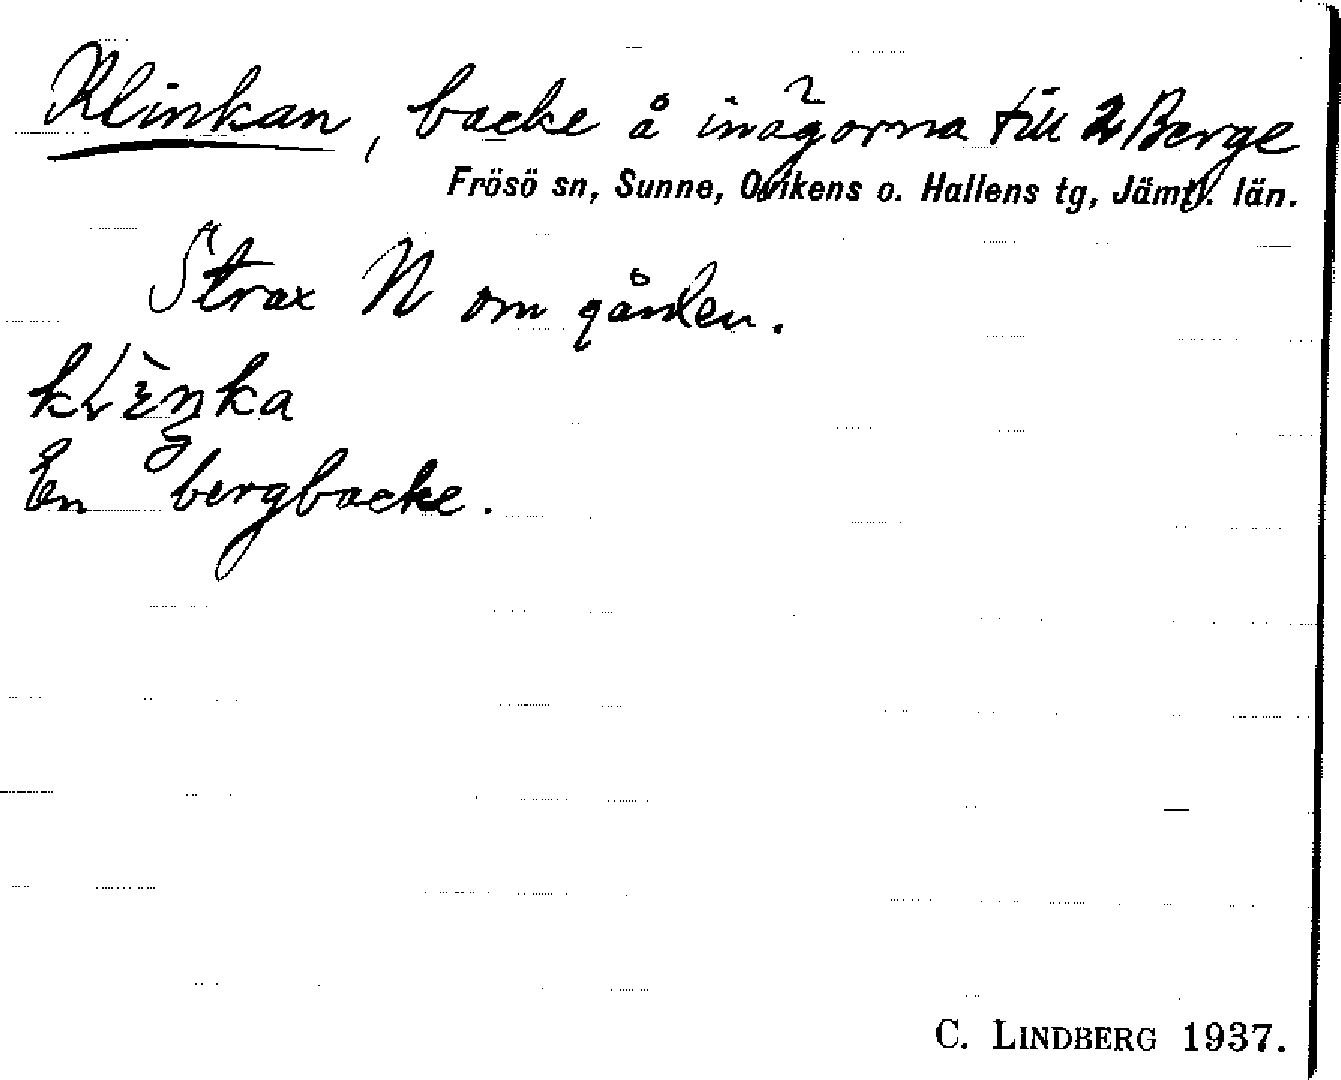 Klinkan, backe å inägorna till 2 Berge
Frösö sn, Sunne, Ovikens o. Hallens tg, Jämtl. län.
Strax N om gården.
En bergbacke.
C. LINDBERG 1937.